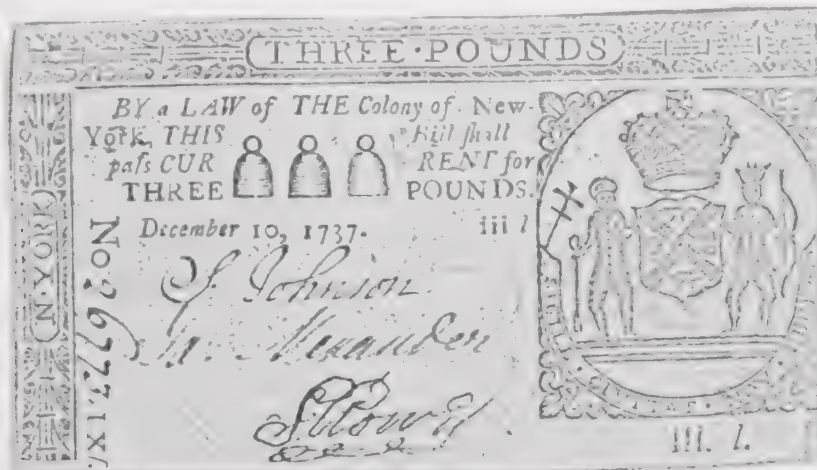 THREE·POUNDS
BY a LAW of THE Colony of New-
York, THIS Bill ſhall
paſs CUR RENT for
THREE POUNDS.
December 10, 1737. iii l
No 26773
N·YORK
S. Johnson
Ja. Alexander
III. l.